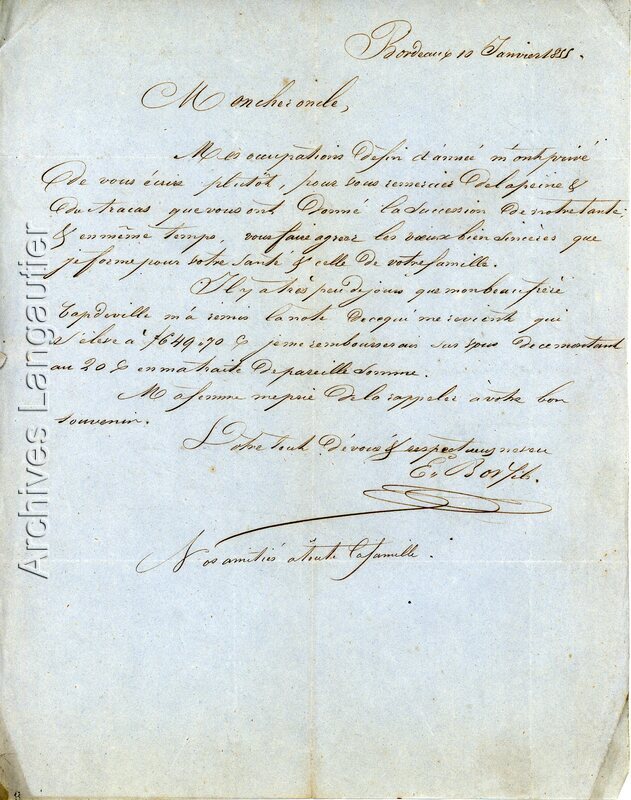 Bordeaux 10 Janvier 1855.
Mon cher oncle,
Mes occupations de fin d'année m'ont privé
de vous écrire plutôt, pour vous remercier de la peine &
du tracas que vous ont donné la succession de notre tante
& en même temps, vous faire agréer les vœux bien sincères que
je forme pour votre santé & celle de votre famille.
Il y a très peu de jours que mon beau frère
Capdeville m'a remis la note de ce qui me revient qui
s'élève à 7649.70 & je me rembourserais sur vous de ce montant
au 20 Ct en ma traite de pareille somme.
Ma femme me prie de la rappeler à votre bon
souvenir.
Votre tout dévoué & respectueux neveu
Ed
Nos amitiés à toute la famille.
Archives Langautier